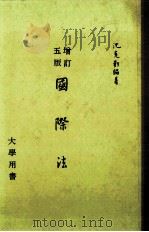 沈克勤編著
增訂
五版
國際法
大學用書